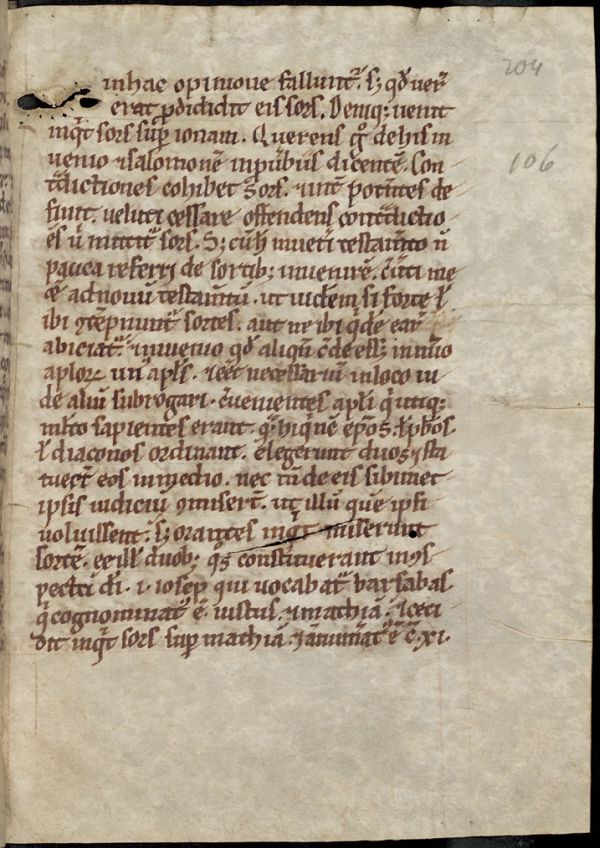 204
in hac opinione fallunt᷑. s; qd̄ uer᷑
erat ꝑdidicit eis sors. Deniq; uenit
inq̇t sors sup̄ ionam. Querens g̊ de his in
uenio ⁊ salomonē in ꝓuerbiis dicentē. Con
t̃dictiones cohibet sors. ⁊ int̄ potentes de
finit. ueluti cessare ostendens cont̃dictio
es
106
pauca referri de sortib; inuenirē.
ē ad nouū testam̄tū. ut uidem̄ si forte
ibi sortes. aut ne ibi q̇dē
abiciat᷑. ⁊ inuenio qd̄ aliqn̄
aploꝝ un᷒ apl᷒s. ⁊ necessariū in loco iu
de aliū subrogari. ꝯuenientes apl̄i
sapientes erant.
l᷒ diaconos ordinant. elegerunt duos ⁊ sta
tuer̄t eos in medio. nec tn̄ de eis sibimet
ipsis iudiciū ꝯmiser̄t. ut illū quē ipsi
uoluissent. s; orantes inq̇t miserunt
sortē. ex ill᷒ duob; q̊s constituerant in ꝯs
pectu dī. i. iosep qui uocabat᷑ barsabas
q̇ cognominat᷒ ē iustus. ⁊ mathiā. ⁊ ceci
dit inq̇t sors sup̄ mathiā. ⁊ ānum̄at᷒ ē c̄ .xi.